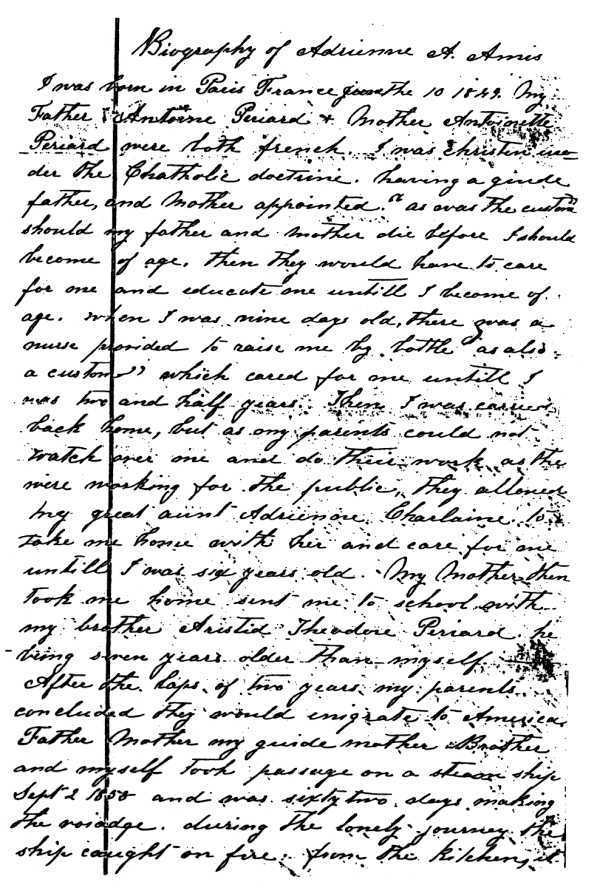 Biography of Adrienne A. Amis
I was born in Paris France June the 10 1849. My
Father Antoine Periard & Mother Antoinette
Periard were both french. I was christen un-
der the Chatholic doctrine. having a guide
father, and Mother appointed "as was the custom"
should my father and mother die before I should
become of age, then they would have to care
for me and educate me untill I become of
age. when I was nine days old, there was a
nurse provided to raise me by bottle "as also
a custom" which cared for me untill I
was two and half years. Then I was carried
back home, but as my parents could not
watch over me and do their work as they
were working for the public, they allowed
my great aunt Adrienne Charlaine to
take me home with her and care for me
untill I was six years old. My Mother then
took me home sent me to school with
my brother Aristid Theodore Periard he
being seven years older than myself
After the laps of two years my parents
concluded they would imigrate to America.
Father Mother my guide mother Brother
and myself took passage on a steam ship
Sept 2 1858 and was sixty two days making
the voiadge. during the lonely journey the
ship caught on fire, from the kitchen, it